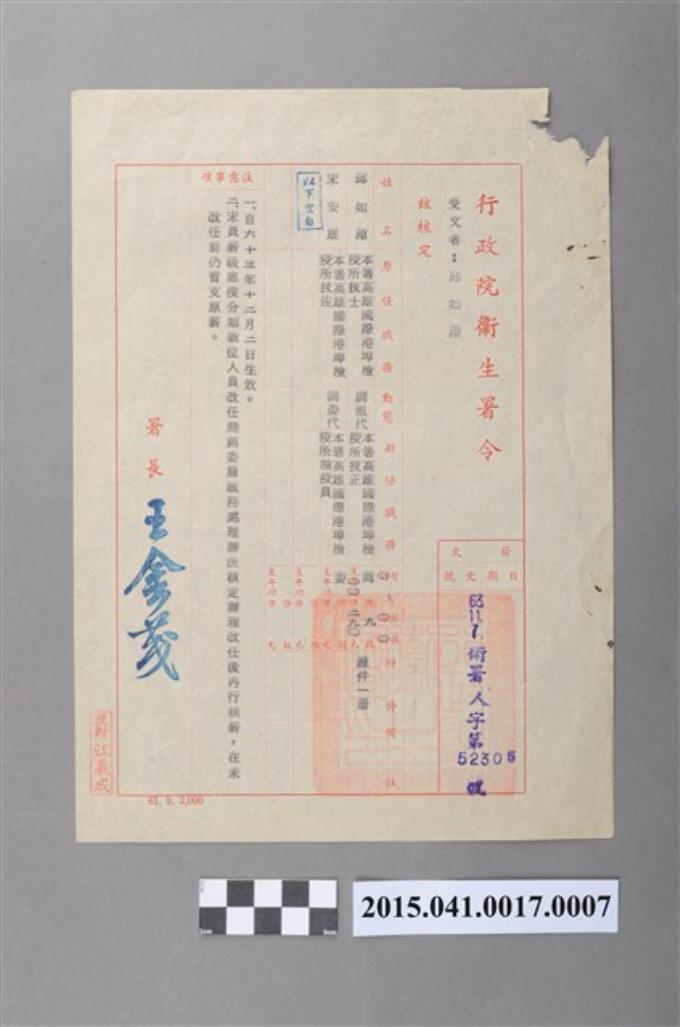 行政院衛生署令
受文者：邱如
茲核定
發文
日期文號
63.11.7.衛署人字第
5230 號
姓名
原任職務
動態
新任職務
附件
備註
邱如
本署高雄國際港埠檢
疫所技士
調派代
本署高雄國際港埠檢
疫所技正
證件一冊
宋安雄
本署高雄國際港埠檢
疫所技佐
調委代
本署高雄國際港埠檢
疫所檢疫員
委
二九〇
以下空白
注意事項
一、自六十三年十二月二日生效。
二、宋員薪級應俟分類職位人員改任簡薦委職務處理辦法核定辦理改任後再行核薪，在未
改任前仍暫支原薪。
署長 王金茂
校對江義成
61. 5. 2,000
2015.041.0017.0007
1cm
5cm